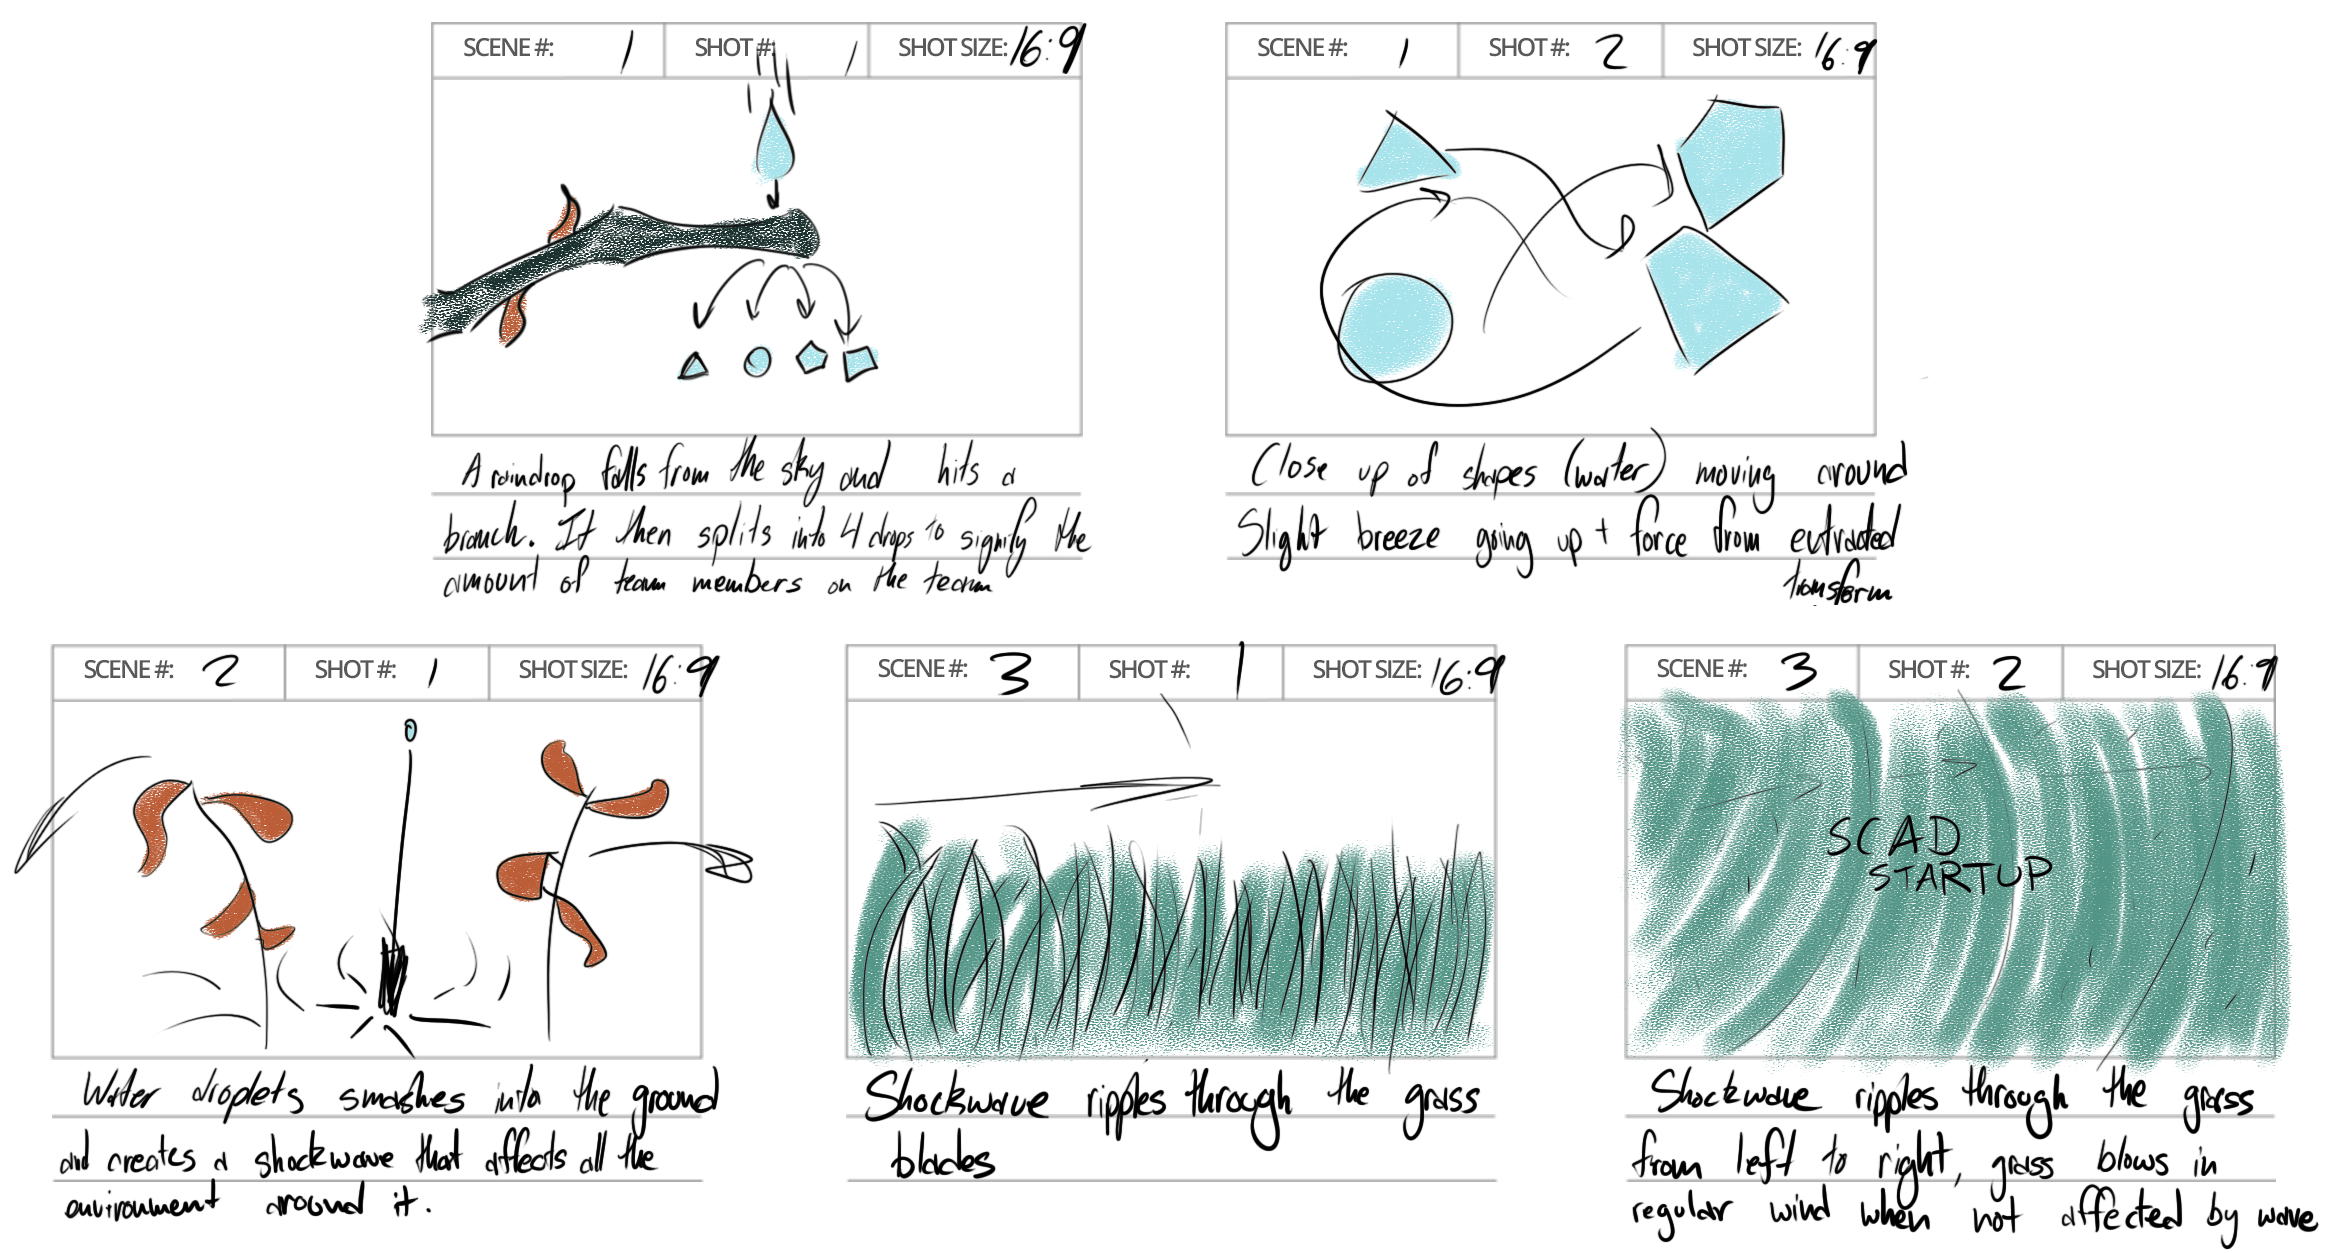 SCENE #: 1 SHOT #: 1 SHOT SIZE: 16:9
A raindrop falls from the sky and hits a
branch. It then splits into 4 drops to signify the
amount of team members on the team
SCENE #: 1 SHOT #: 2 SHOT SIZE: 16:9
Close up of shapes (water) moving around
Slight breeze going up + force from extracted
transform
SCENE #: 2 SHOT #: 1 SHOT SIZE: 16:9
Water droplets smashes into the ground
and creates a shockwave that affects all the
environment around it.
SCENE #: 3 SHOT #: 1 SHOT SIZE: 16:9
Shockwave ripples through the grass
blades
SCENE #: 3 SHOT #: 2 SHOT SIZE: 16:9
SCAD
STARTUP
Shockwave ripples through the grass
from left to right, grass blows in
regular wind when not affected by wave